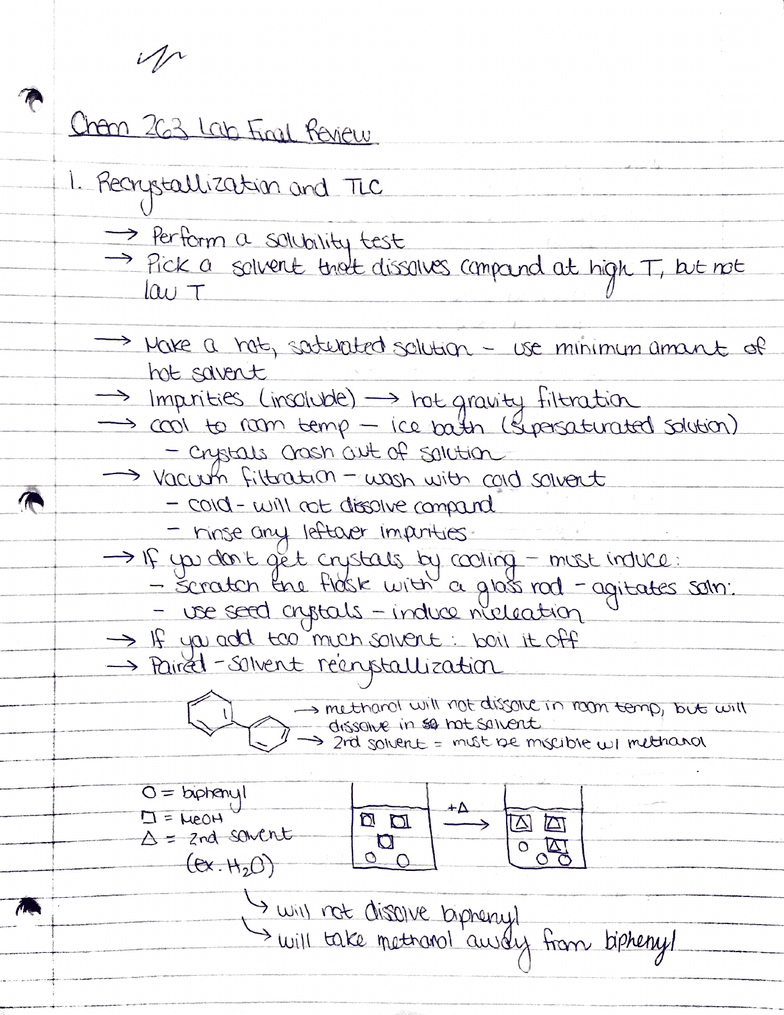 Chem 263 Lab Final Review
1. Recrystallization and TLC
→ Perform a solubility test
→ Pick a solvent that dissolves compound at high T, but not
low T
→ Make a hot, saturated solution - use minimum amount of
hot solvent
→ Impurities (insoluble) → hot gravity filtration
→ cool to room temp - ice bath (supersaturated solution)
- crystals crash out of solution
→ Vacuum filtration - wash with cold solvent
- cold - will not dissolve compound
- rinse any leftover impurities.
→ If you don't get crystals by cooling - must induce:
- scratch the flask with a glass rod - agitates soln.
- use seed crystals - induce nucleation
→ If you add too much solvent: boil it off
→ Paired-solvent recrystallization
→ methanol will not dissolve in room temp, but will
dissolve in hot solvent
→ 2nd solvent = must be miscible w/ methanol
○ = biphenyl
□ = MeOH
△ = 2nd solvent
(ex. H₂O)
+△
→ will not dissolve biphenyl
→ will take methanol away from biphenyl